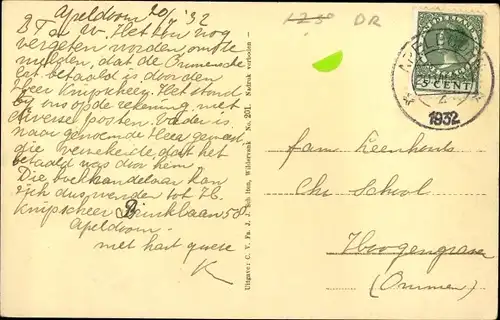 Apeldoorn 20/7 '32
B T en W. Het zou nog
vergeten worden, om te
melden, dat de Ommensche
betaald is door den
Heer Knipscheer. Het stond
bij ons op de rekening, met
diverse posten. Vader is
naar genoemde Heer geweest
die verzekerde, dat het
betaald was door hem.
Die boekhandelaar kan
zich dus wenden tot H.
Knipscheer Brinklaan 58
Apeldoorn
met hart groete
K
Uitgave: C. V. Fa. J. J. ten, Wildervank No. 201. Nadruk verboden
1250
DR
NEDERLAND
5 CENT
APEL
1932
fam. Leenhouts
Chr School
Hoogengraven
(Ommen)